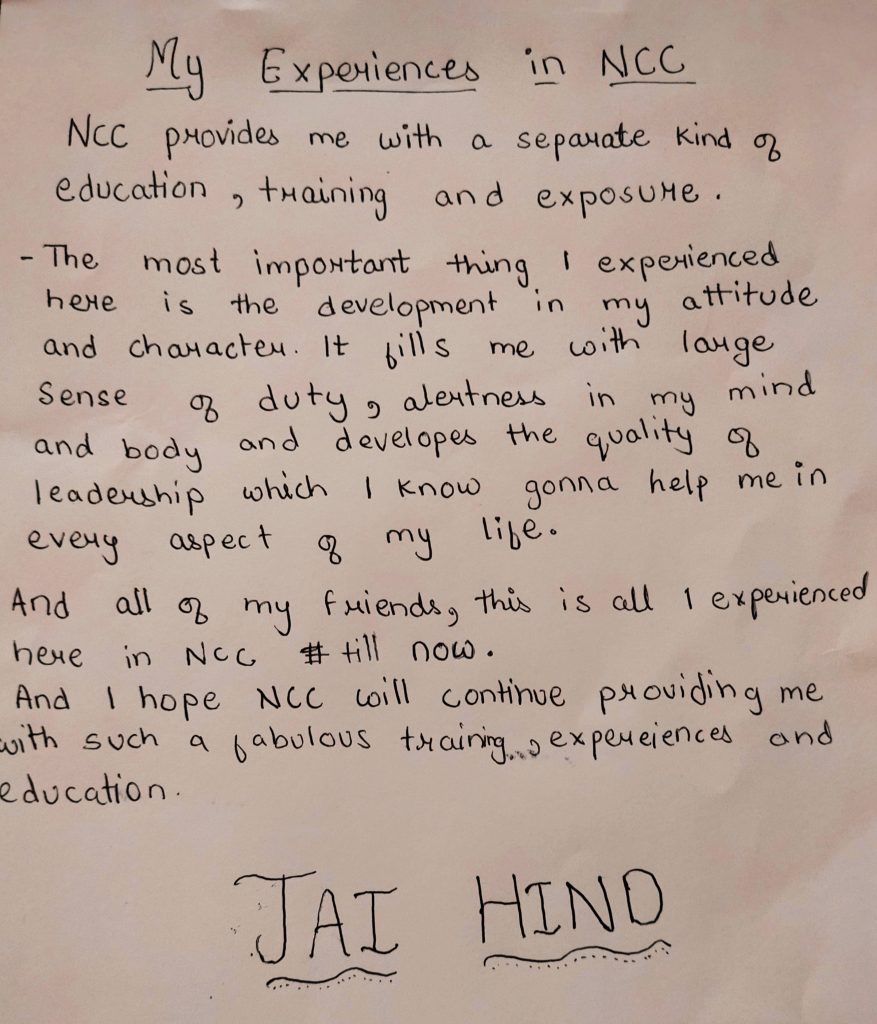 My Experiences in NCC
NCC provides me with a separate kind of
education, training and exposure.
- The most important thing I experienced
here is the development in my attitude
and character. It fills me with large
Sense of duty, alertness in my mind
and body and developes the quality of
leadership which I know gonna help me in
every aspect of my life.
And all of my friends, this is all I experienced
here in NCC till now.
And I hope NCC will continue providing me
with such a fabulous training, expereiences and
education.
JAI HIND